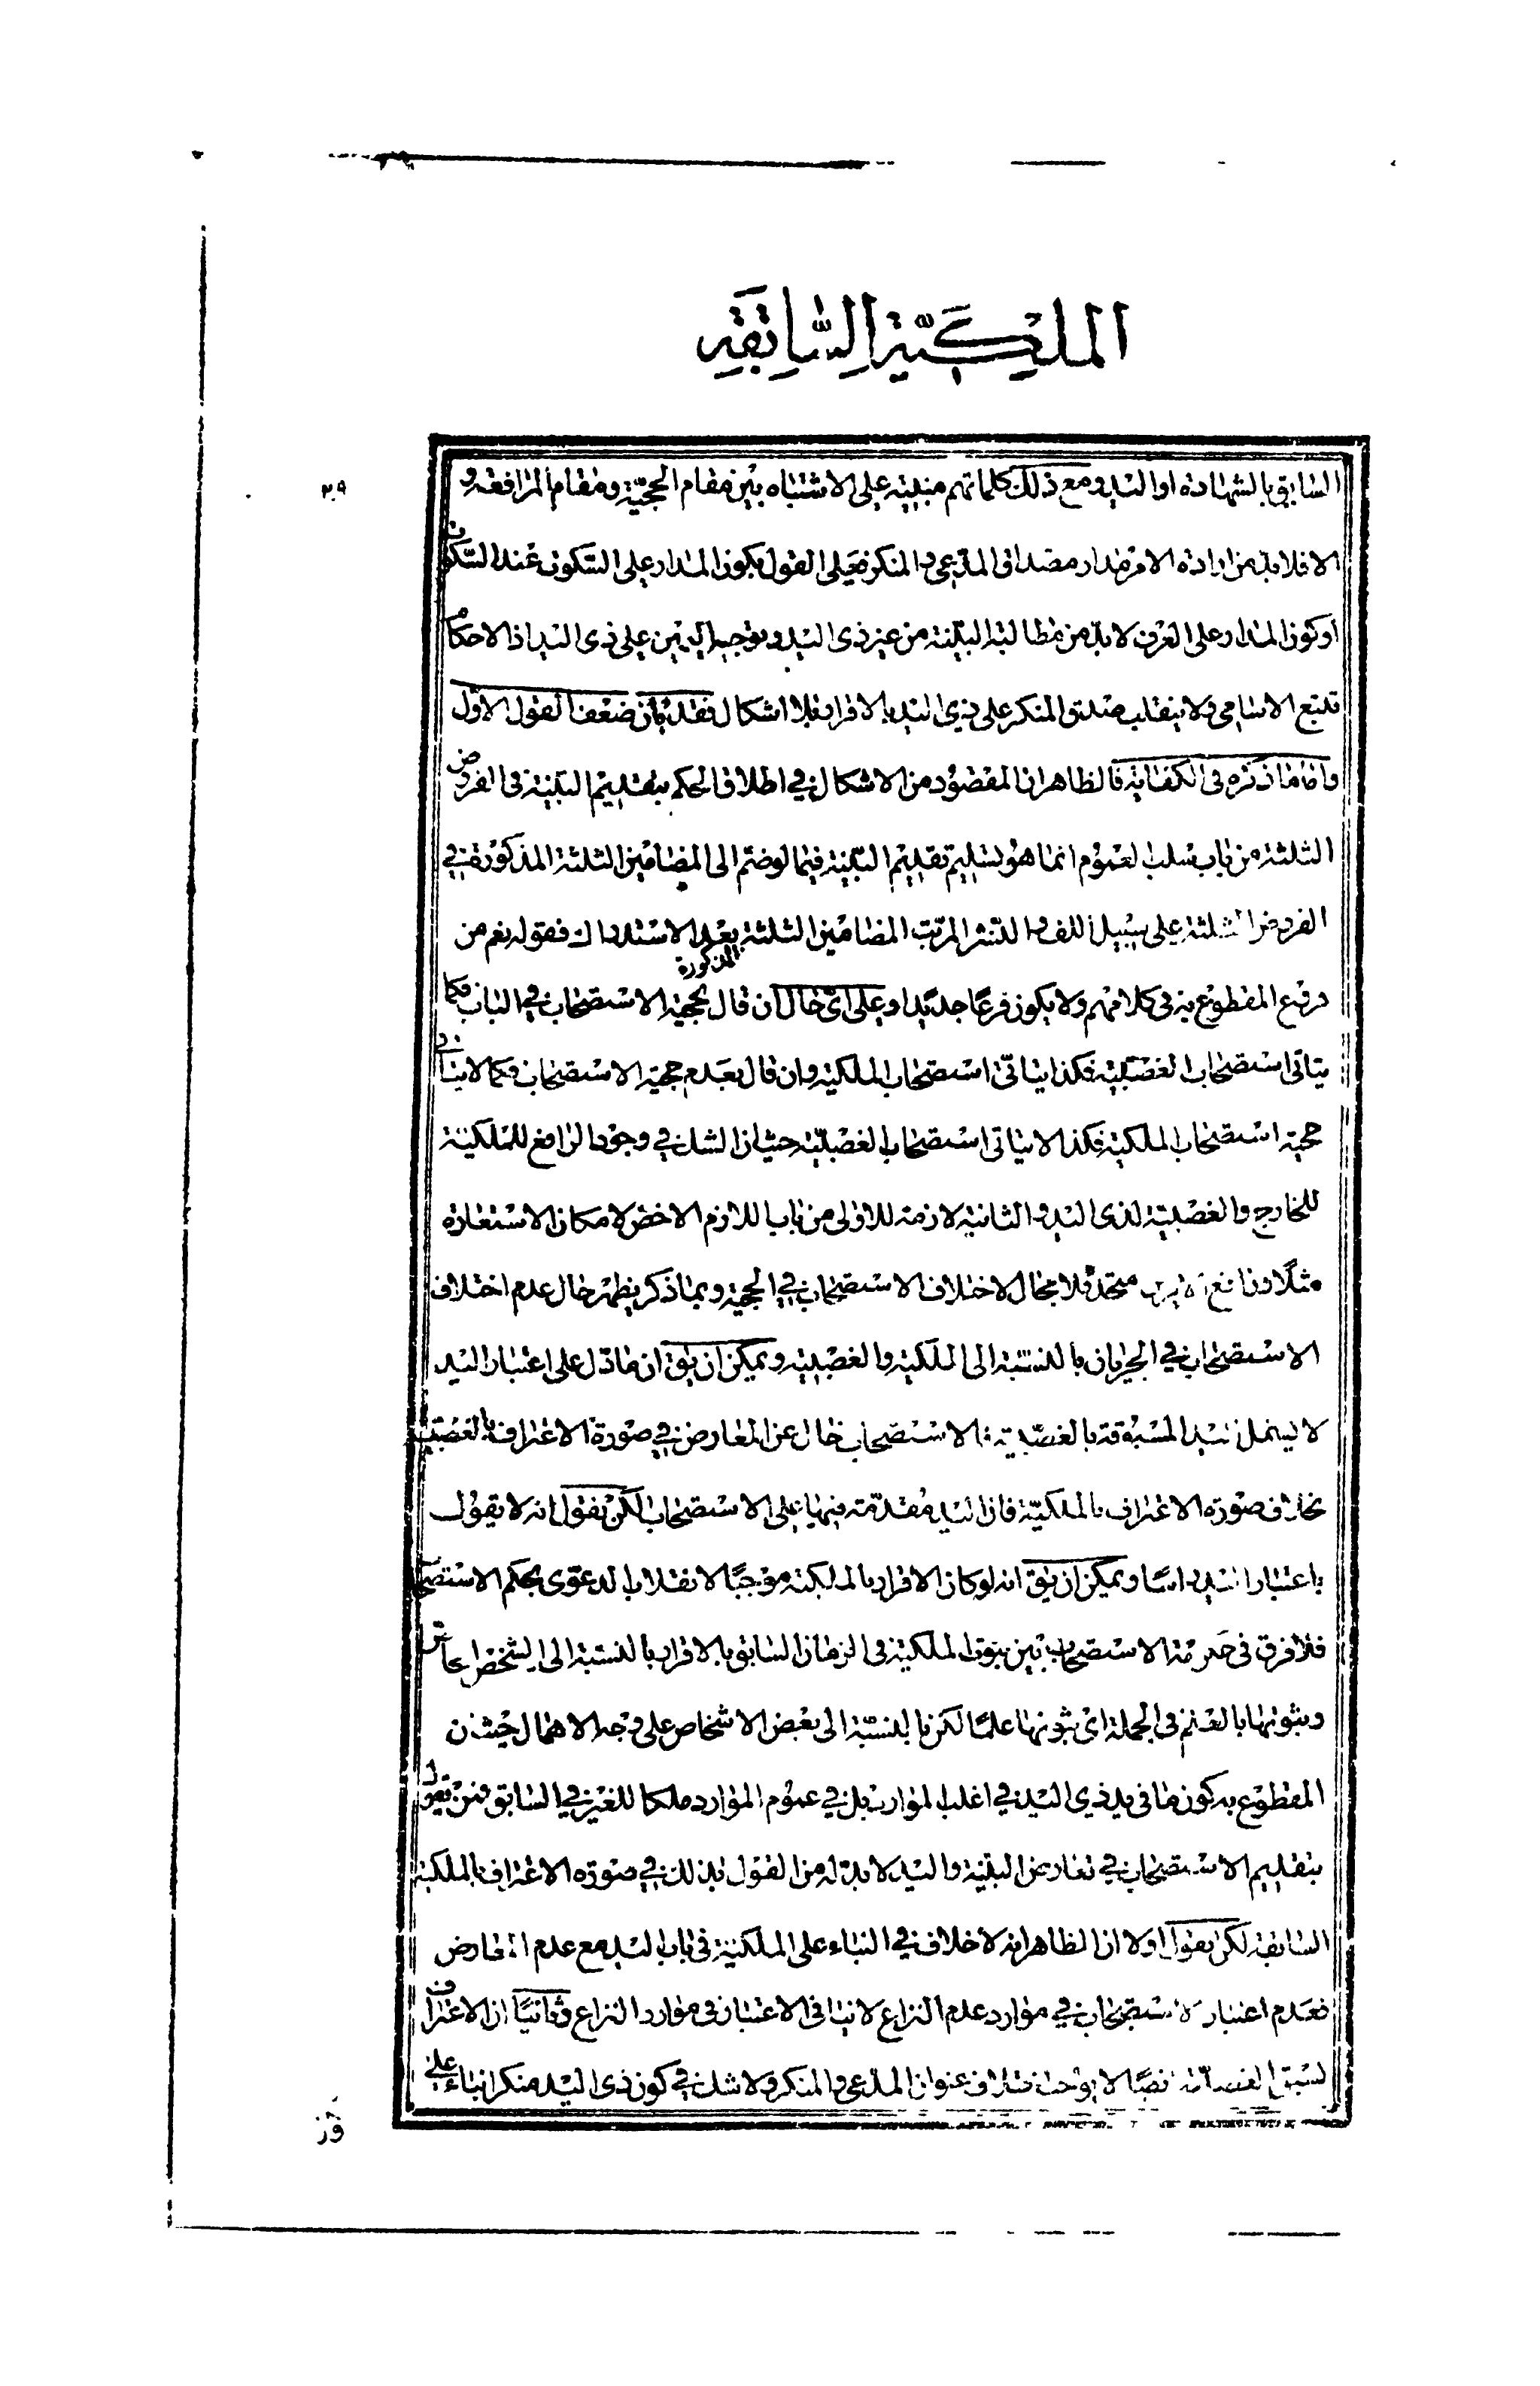 الملكيّة السّابقة
السّابق بالشهادة او اليد ومع ذلك كلماتهم مبنيّة على الاشتباه بين مقام الحجيّة ومقام المرافعة و
٢٠٩
الا فلا بدّ من ارادة الامر مدار مصداق المدّعى والمنكر فعلى القول بكون المدار على السّكون عند السّكوت
او كون المدار على العرف لا بدّ من مطالبة البيّنة من غير ذى اليد وتوجيه اليمين على ذى اليد اذ الاحكام
تتبع الاسامى ولا ينقلب صدق المنكر على ذى اليد بالاقرار بلا اشكال فقد بان ضعف القول الاوّل
وامّا ما ذكره فى الكفاية فالظاهر ان المقصود من الاشكال فى اطلاق الحكم بتقديم البيّنة فى الفروض
الثلثة من باب سلب العموم انما هو تسليم تقديم البيّنة فيما لو ضم الى المضامين الثلثة المذكورة فى
الفروض الثلثة على سبيل اللف والنشر المرتب المضامين الثلثة المذكورة بعد الاستدراك فقوله نعم من
فرقع المقطوع به فى كلامهم ولا يكون فرعًا جديدا وعلى اىّ حال ان قال بحجية الاستصحاب فى الباب فكما
يتاتى استصحاب الغصبيّة فكذا يتاتّى استصحاب الملكية وان قال بعدم حجية الاستصحاب فكما لا يتاتى
حجية استصحاب الملكية فكذا لا يتاتى استصحاب الغصبيّة حيث ان الشك فى وجود الرافع للملكيّة
للخارج والغصبيّة لذى اليد والثانية لازمة للاولى من باب اللازم الاخص لامكان الاستعارة
مثلًا ورافع متحد فلا مجال لاختلاف الاستصحاب فى الحجية وبما ذكر يظهر حال عدم اختلاف
الاستصحاب فى الجريان بالنسبة الى الملكية والغصبية ويمكن ان يق ان ما دّل على اعتبار اليد
لا يشمل اليد المسبوقة بالغصبية فالاستصحاب خال عن المعارض فى صورة الاعتراف بالغصبية
بخلاف صورة الاعتراف بالملكيّة فان اليد مقدّمة فيها على الاستصحاب لكن نقول انه لا يقول
باعتبار اليد راسًا ويمكن ان يق انه لو كان الاقرار بالملكية موجبًا لانقلاب الدعوى بحكم الاستصحاب
فلا فرق فى الاستصحاب بين ثبوت الملكية فى الزمان السابق بالاقرار بالنسبة الى الشخص
وثبوتها بالعلم فى الجملة اى ثبوتها علمًا لكن بالنسبة الى بعض الاشخاص على وجه الاهمال حيث ان
المقطوع به كون ما فى يد ذى اليد فى اغلب الموارد بل فى عموم الموارد ملكا للغير فى السابق فمن يقول
بتقديم الاستصحاب فى تعارض البيّنة واليد لا بدّ له من القول بذلك فى صورة الاعتراف بالملكية
السّابقة لكن نقول اولا ان الظاهر انه لا خلاف فى البناء على الملكية فى باب اليد مع عدم التعارض
فعدم اعتبار الاستصحاب فى موارد عدم النزاع لا ينافى الاعتبار فى موارد النزاع وثانيًا ان الاعتراف
لسبق لا يوجب اختلاف عنوان المدعى والمنكر ولا شك فى كون ذى اليد منكرا بناء على